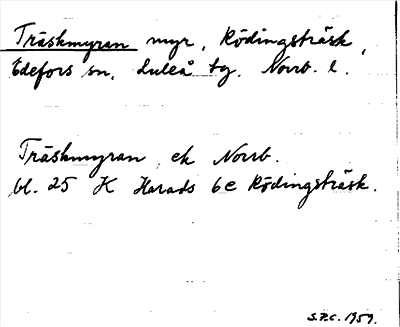 Träskmyran myr, Rödingsträsk,
Edefors sn, Luleå tg. Norrb. l.
Träskmyran, ek Norrb.
bl. 25 K Harads 6e Rödingsträsk.
S.F.C. 1959.